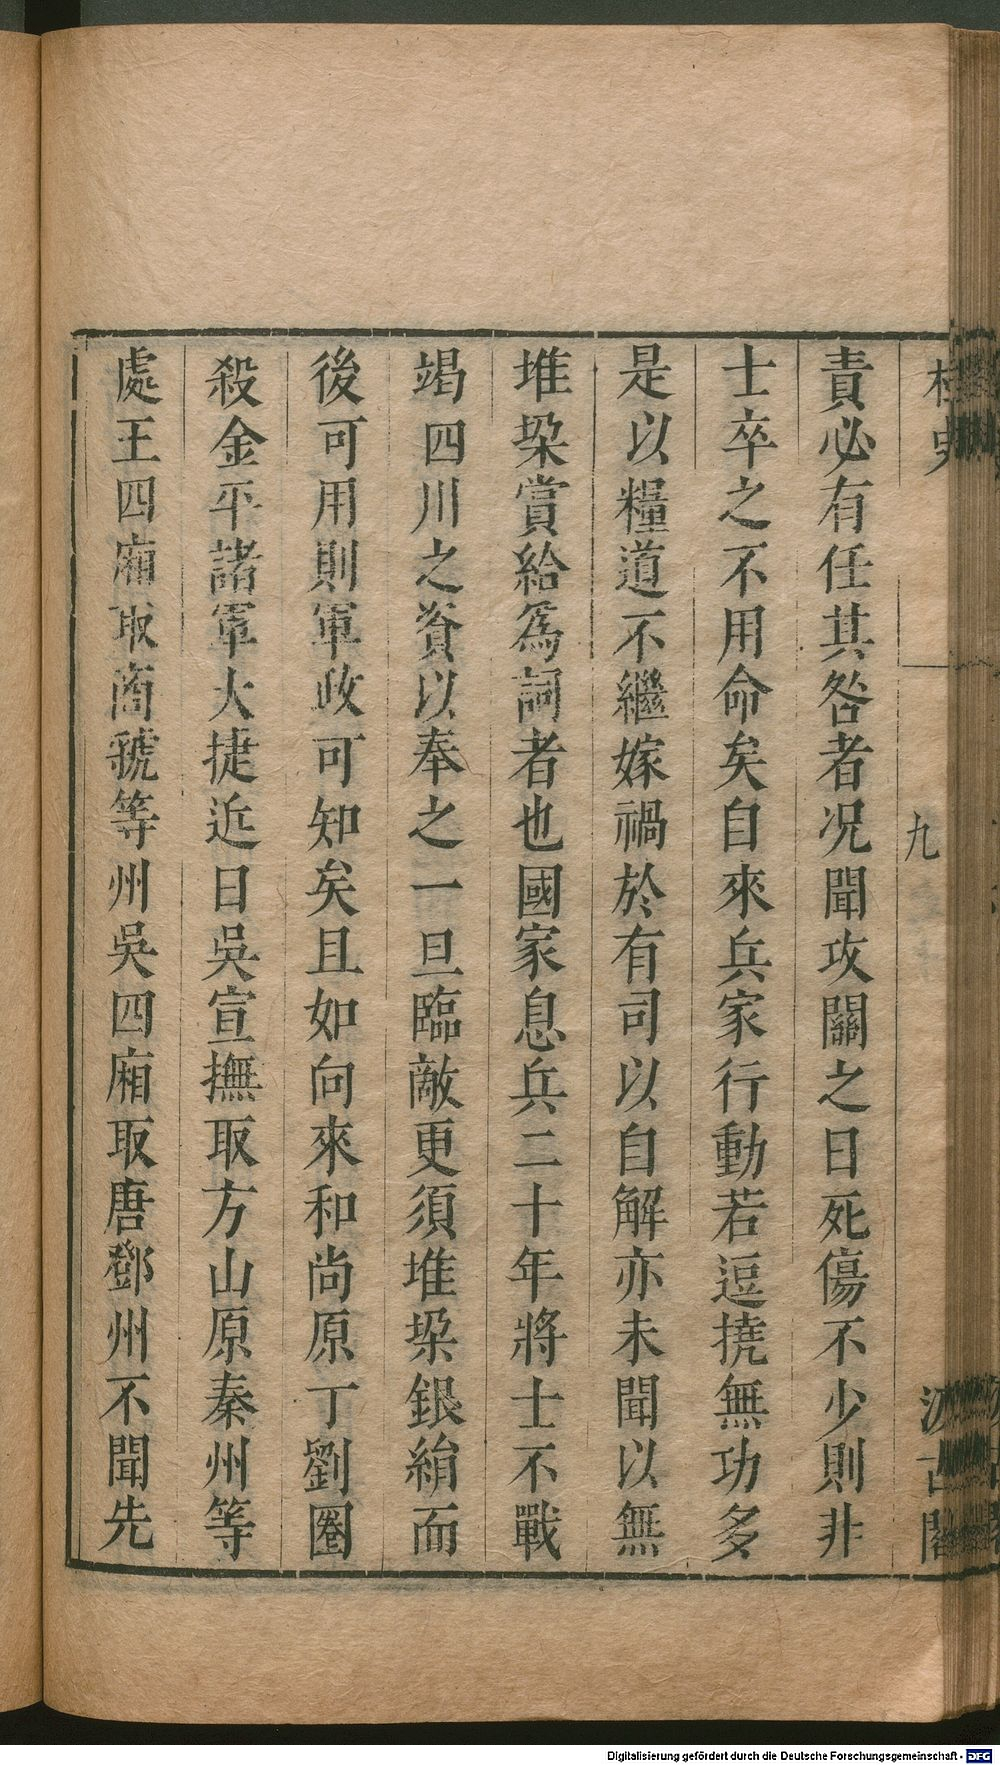 桯史
九
汲古閣
責必有任其咎者况聞攻關之日死傷不少則非
士卒之不用命矣自來兵家行動若逗撓無功多
是以糧道不繼嫁禍於有司以自解亦未聞以無
堆垜賞給爲詞者也國家息兵二十年將士不戰
竭四川之資以奉之一旦臨敵更須堆垜銀絹而
後可用則軍政可知矣且如向來和尚原丁劉圈
殺金平諸軍大捷近日吳宣撫取方山原秦州等
處王四廂取商虢等州吳四廂取唐鄧州不聞先
Digitalisierung gefördert durch die Deutsche Forschungsgemeinschaft - DFG